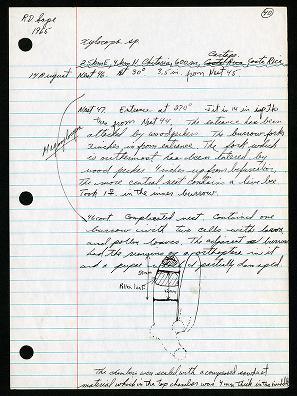 R.D. Sage
1965
40
Xylocopa sp.
Cartago
600 m, Costa Rica Costa Rica
14 August Nest 46. At 30° 3.5 in. from Nest 45.
Nest 47. Entrance at 270° It is 14 in up the
tree from Nest 44. The entrance has been
attacked by woodpeckers. The burrow forks
7 inches in from entrance. The fork which
is outermost has been entered by
wood pecker 4 inches up from bifurcation.
The more central nest contains a live bee.
Took 1 ♀ in the inner burrow.
46 cont Complicated nest. Contained one
burrow with two cells with larva
and pollen loaves. The adjacent burrow
had the remains of a in it
and a pupa partially damaged
The chambers were sealed with a composed sawdust
material which in the top chamber was 4 mm thick in the middle